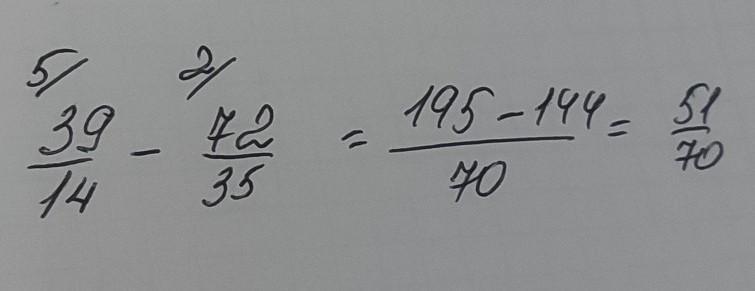 5/ 2/
39/14 - 72/35 = 195-144/70 = 51/70